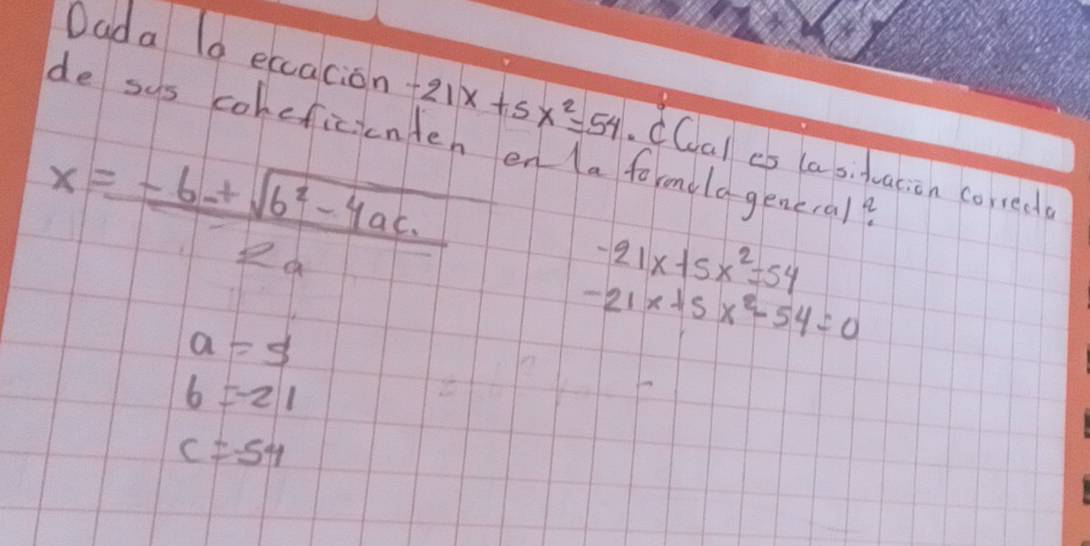 Dada la ecuación -21x + 5x² = 54. ¿Cual es la situación correcta
de sus coheficienten en la formula general?
x = -b ± √b² - 4ac.
2a
-21x + 5x² = 54
-21x + 5x² - 54 = 0
a = 5
b = -21
c = -54